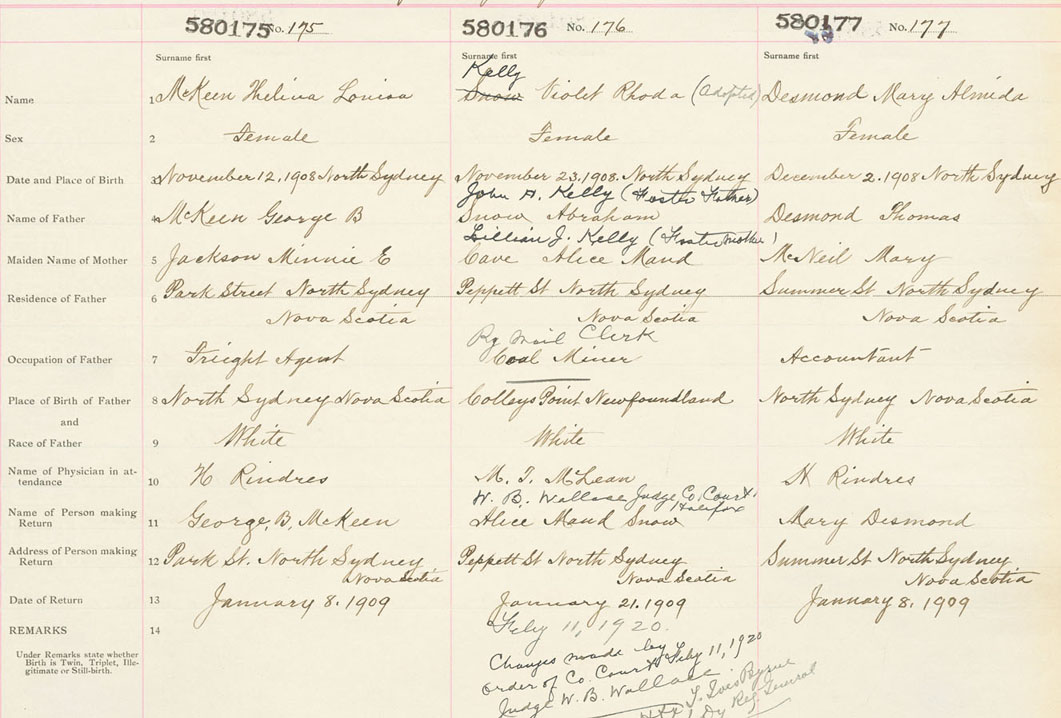 580175 No. 175 580176 No. 176 580177 No. 177
Surname first Surname first Surname first
Kelly
Name 1 McKeen Thelina Louisa Snow Violet Rhoda (Adopted) Desmond Mary Almida
Sex 2 Female Female Female
Date and Place of Birth 3 November 12, 1908 North Sydney November 23. 1908. North Sydney December 2. 1908 North Sydney
John A. Kelly (Foster Father)
Name of Father 4 McKeen George B Snow Abraham Desmond Thomas
Lillian J. Kelly (Foster mother)
Maiden Name of Mother 5 Jackson Minnie E Cave Alice Maud McNeil Mary
Residence of Father 6 Park Street North Sydney Peppett St North Sydney Summer St. North Sydney
Nova Scotia Nova Scotia Nova Scotia
Ry Mail Clerk
Occupation of Father 7 Frieght Agent Coal Miner Accountant
Place of Birth of Father 8 North Sydney Nova Scotia Colleys Point Newfoundland North Sydney Nova Scotia
and
Race of Father 9 White White White
Name of Physician in at-
tendance 10 H Rindres M. T. McLean H Rindres
W. B. Wallace Judge Co. Court
Halifax
Name of Person making
Return 11 George, B, McKeen Alice Maud Snow Mary Desmond
Address of Person making
Return 12 Park St. North Sydney Peppett St North Sydney Summer St North Sydney
Nova Scotia Nova Scotia Nova Scotia
Date of Return 13 January 8. 1909 January 21. 1909 January 8, 1909
REMARKS 14 Feby 11, 1920.
Under Remarks state whether
Birth is Twin, Triplet, Ille-
gitimate or Still-birth.
Changes made by
order of Co. Court Feby 11, 1920
Judge W. B. Wallace
Byrne
Dy Reg. General